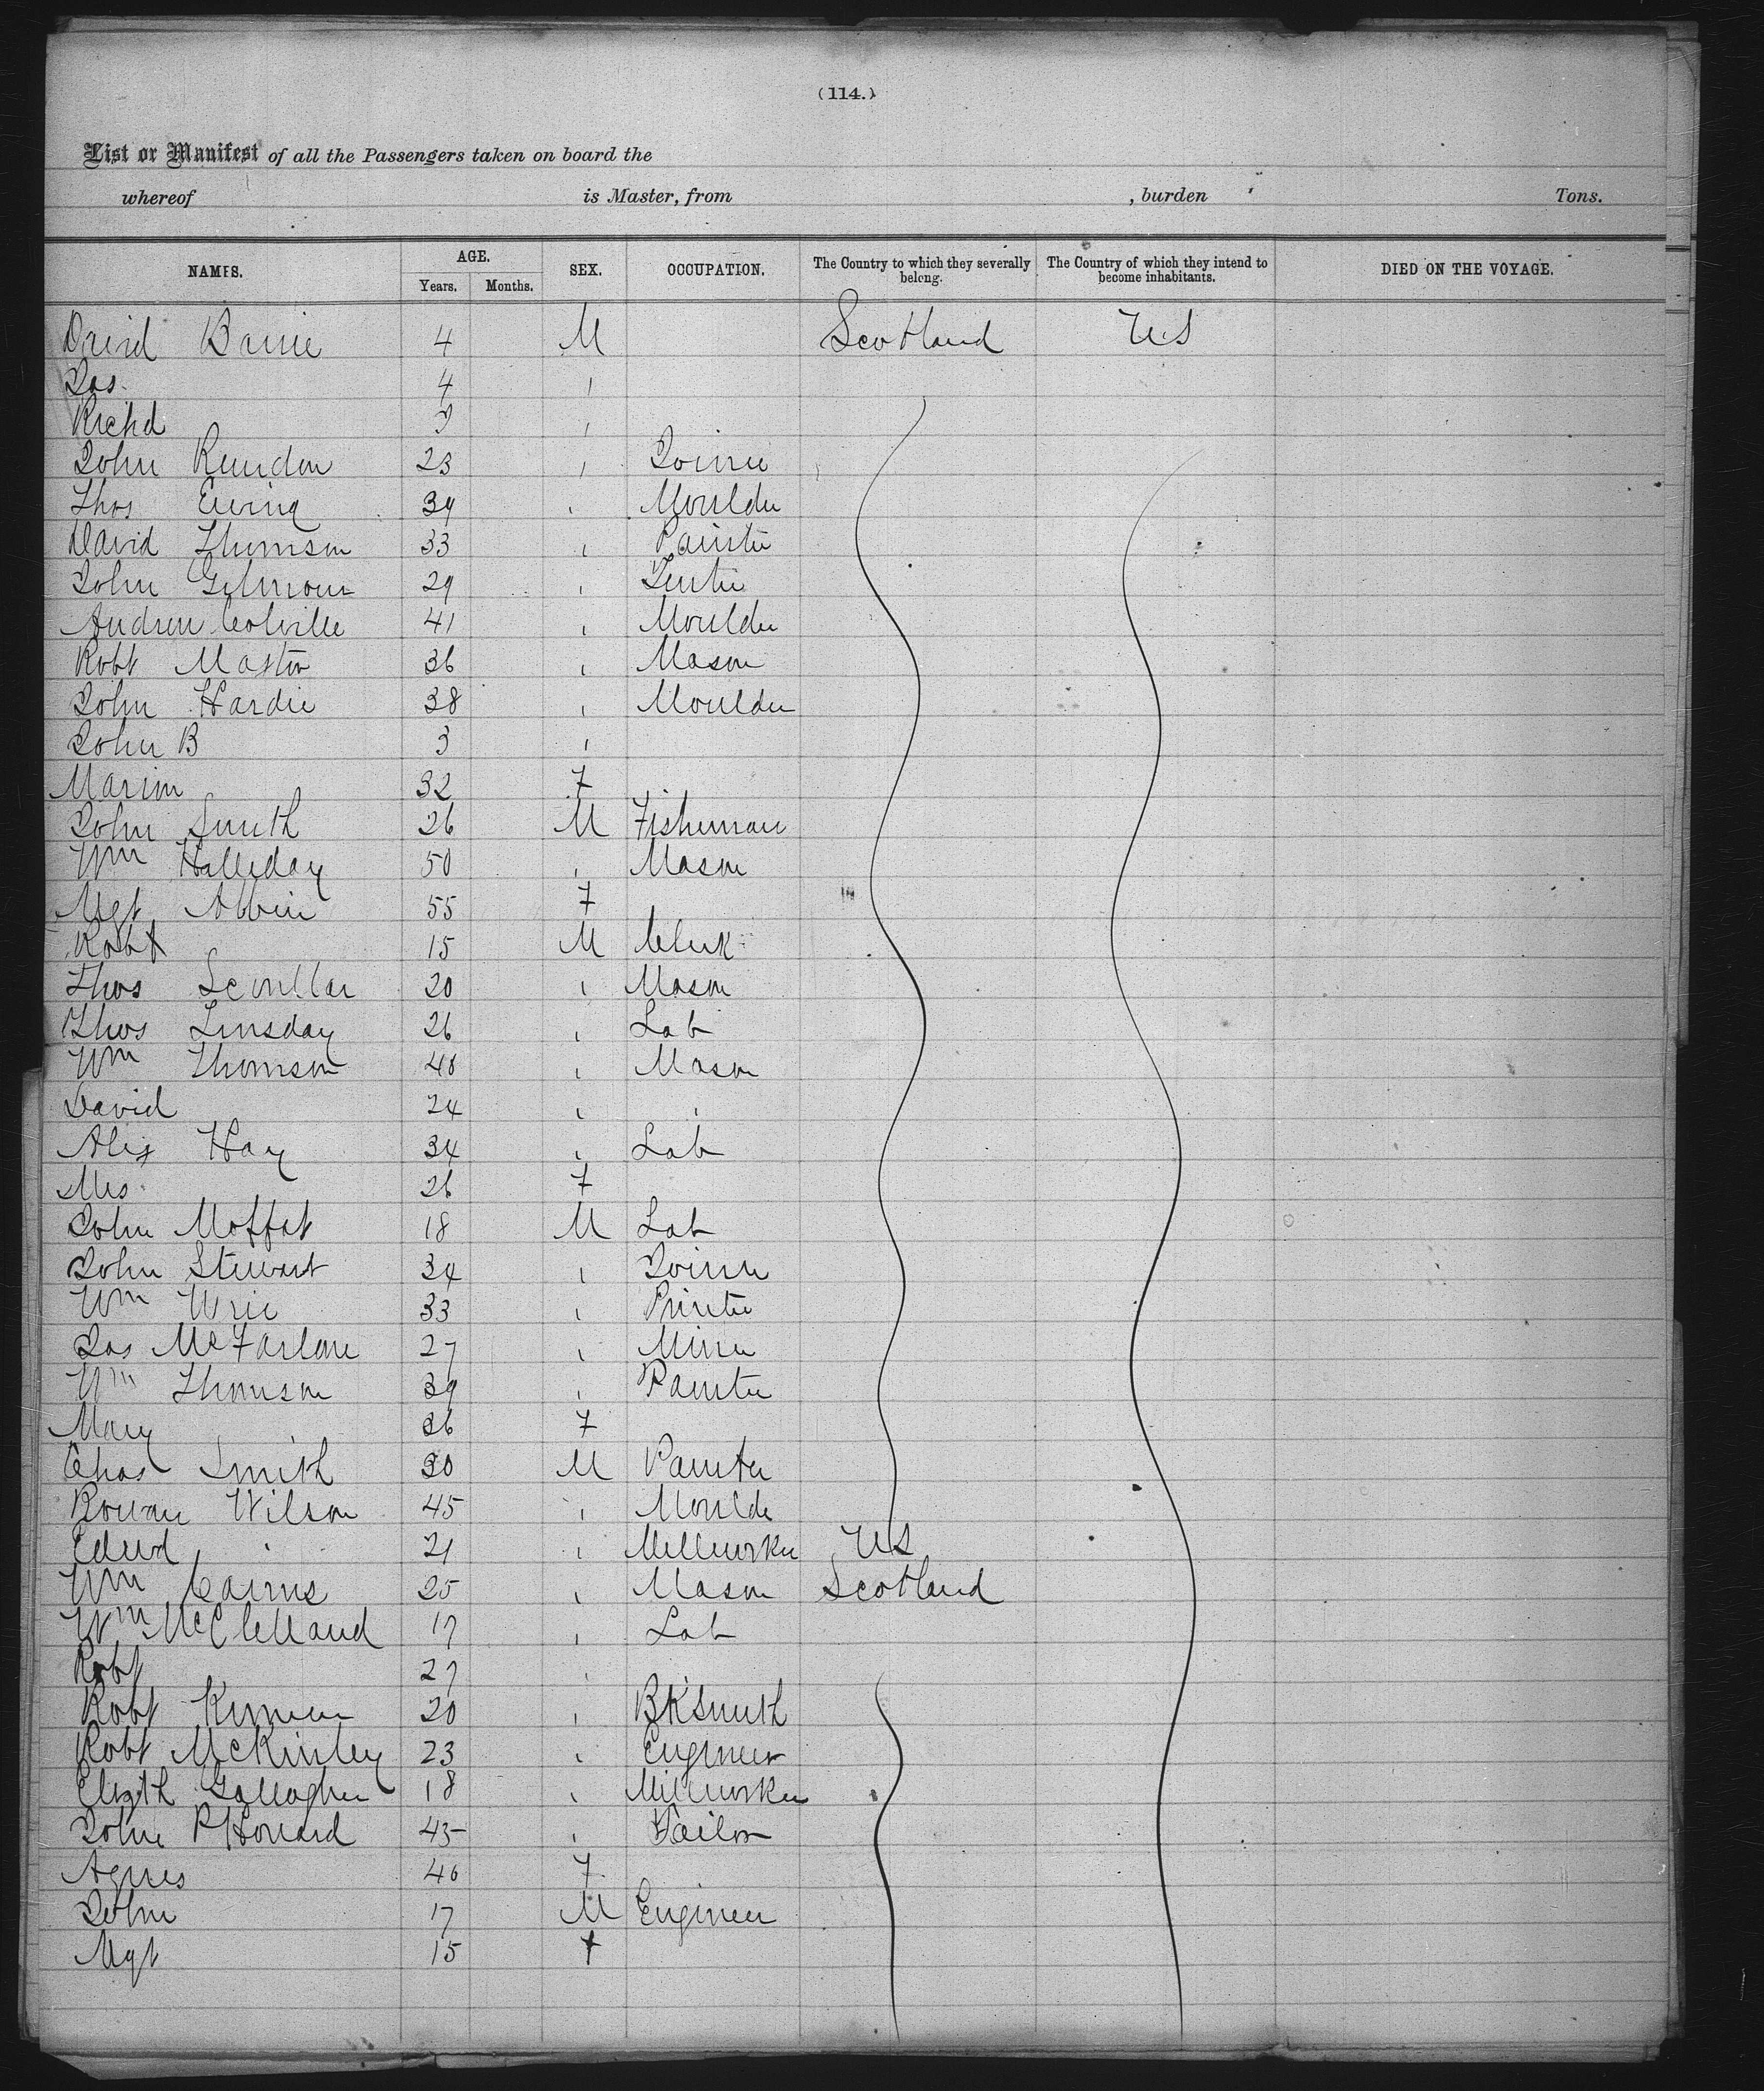 (114.)
List or Manifest of all the Passengers taken on board the
whereof is Master, from , burden Tons.
NAMES. AGE. Years. Months. SEX. OCCUPATION. The Country to which they severally belong. The Country of which they intend to become inhabitants. DIED ON THE VOYAGE.
David Barrie 4 M Scotland US
Jas. 4 "
Richd 3 "
John 23 " Joiner
Thos Ewing 34 " Moulder
David Thomson 33 " Painter
John Gilmour 29 "
Andrew Colville 41 " Moulder
Robt Mastor 36 " Mason
John Hardie 38 " Moulder
John B 3 "
Marion 32 F
John Smith 26 M Fisherman
Wm Halliday 50 " Mason
Mgt 55 F
Robt 15 M Clerk
Thos Scoullar 20 " Mason
Thos Linsday 26 " Lab
Wm Thomson 40 " Mason
David 24 " "
Alex Hay 34 " Lab
Mrs 26 F
John Moffat 18 M Lab
John Stewart 34 " Joiner
Wm 33 " Printer
Jas McFarlane 27 " Miner
Wm Thomson 39 " Painter
Mary 36 F
Chas Smith 30 M Painter
Rowan Wilson 45 " Moulder
Edwd 21 " Millworker US
Wm Cairns 25 " Mason Scotland
Wm McClelland 17 " Lab
Robt 27 "
Robt 20 " BKSmith
Robt McKinley 23 " Engineer
Elizth Gallagher 18 " Millworker
John P Howard 45 " Tailor
Agnes 46 F
John 17 M Engineer
Mgt 15 F